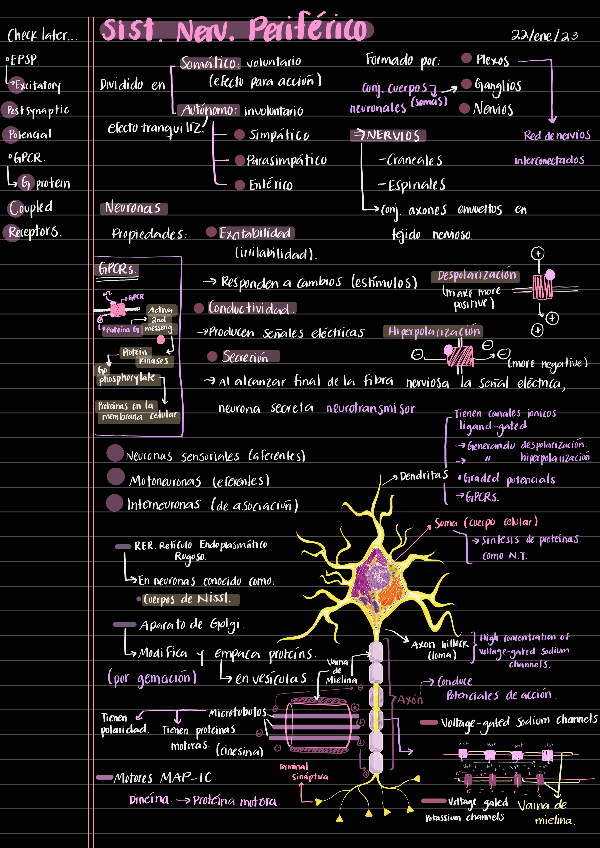 Check later...
°EPSP
Excitatory
PostSynaptic
Potencial
°GPCR.
G protein
Coupled
Receptors.
Sist. Nerv. Periférico
22/ene/23
Dividido en
Somático: voluntario
(efecto para acción)
Autónomo: involuntario
efecto tranquiliz.
Simpático
Parasimpático
Entérico
Formado por:
Plexos
Ganglios
Nervios
conj. cuerpos
neuronales (somas)
Red de nervios
interconectados
→NERVIOS
-Craneales
-Espinales
→Conj. axones envueltos en
tejido nervioso.
Neuronas
Propiedades:
Exitabilidad
(irritabilidad).
→ Responden a cambios (estímulos)
Conductividad.
→Producen señales eléctricas
Secreción
→ Al alcanzar final de la fibra nerviosa la señal eléctrica,
neurona secreta neurotransmisor
Despolarización
(make more
positive)
Hiperpolarización
(more negative)
GPCRs.
GPCR
Proteína G
Activa
2nd
messeng.
Protein
kinases
phosphorylate
Proteínas en la
membrana celular
Neuronas sensoriales (aferentes)
Motoneuronas (eferentes)
Interneuronas (de asociación)
Dendritas
Tienen canales iónicos
ligand-gated
→Generando despolarización.
→ " hiperpolarización
•Graded potencials
→GPCRs.
Soma (cuerpo celular)
→Síntesis de proteínas
como N.T.
RER. Retículo Endoplasmático
Rugoso.
→En neuronas conocido como:
•Cuerpos de Nissl.
Aparato de Golgi.
→Modifica y empaca proteíns.
(por gemación)
→en vesículas.
Axon hillock
(loma)
High concentration of
voltage-gated sodium
channels.
Vaina
de
Mielina
Axón
→Conduce
Potenciales de acción.
Microtúbulos
Tienen
polaridad.
Tienen proteínas
motoras
(cinesina)
Motores MAP-1C
Dineína. → Proteína motora
terminal
sináptica
Voltage-gated Sodium channels
Voltage gated
Potassium channels
Vaina de
mielina.